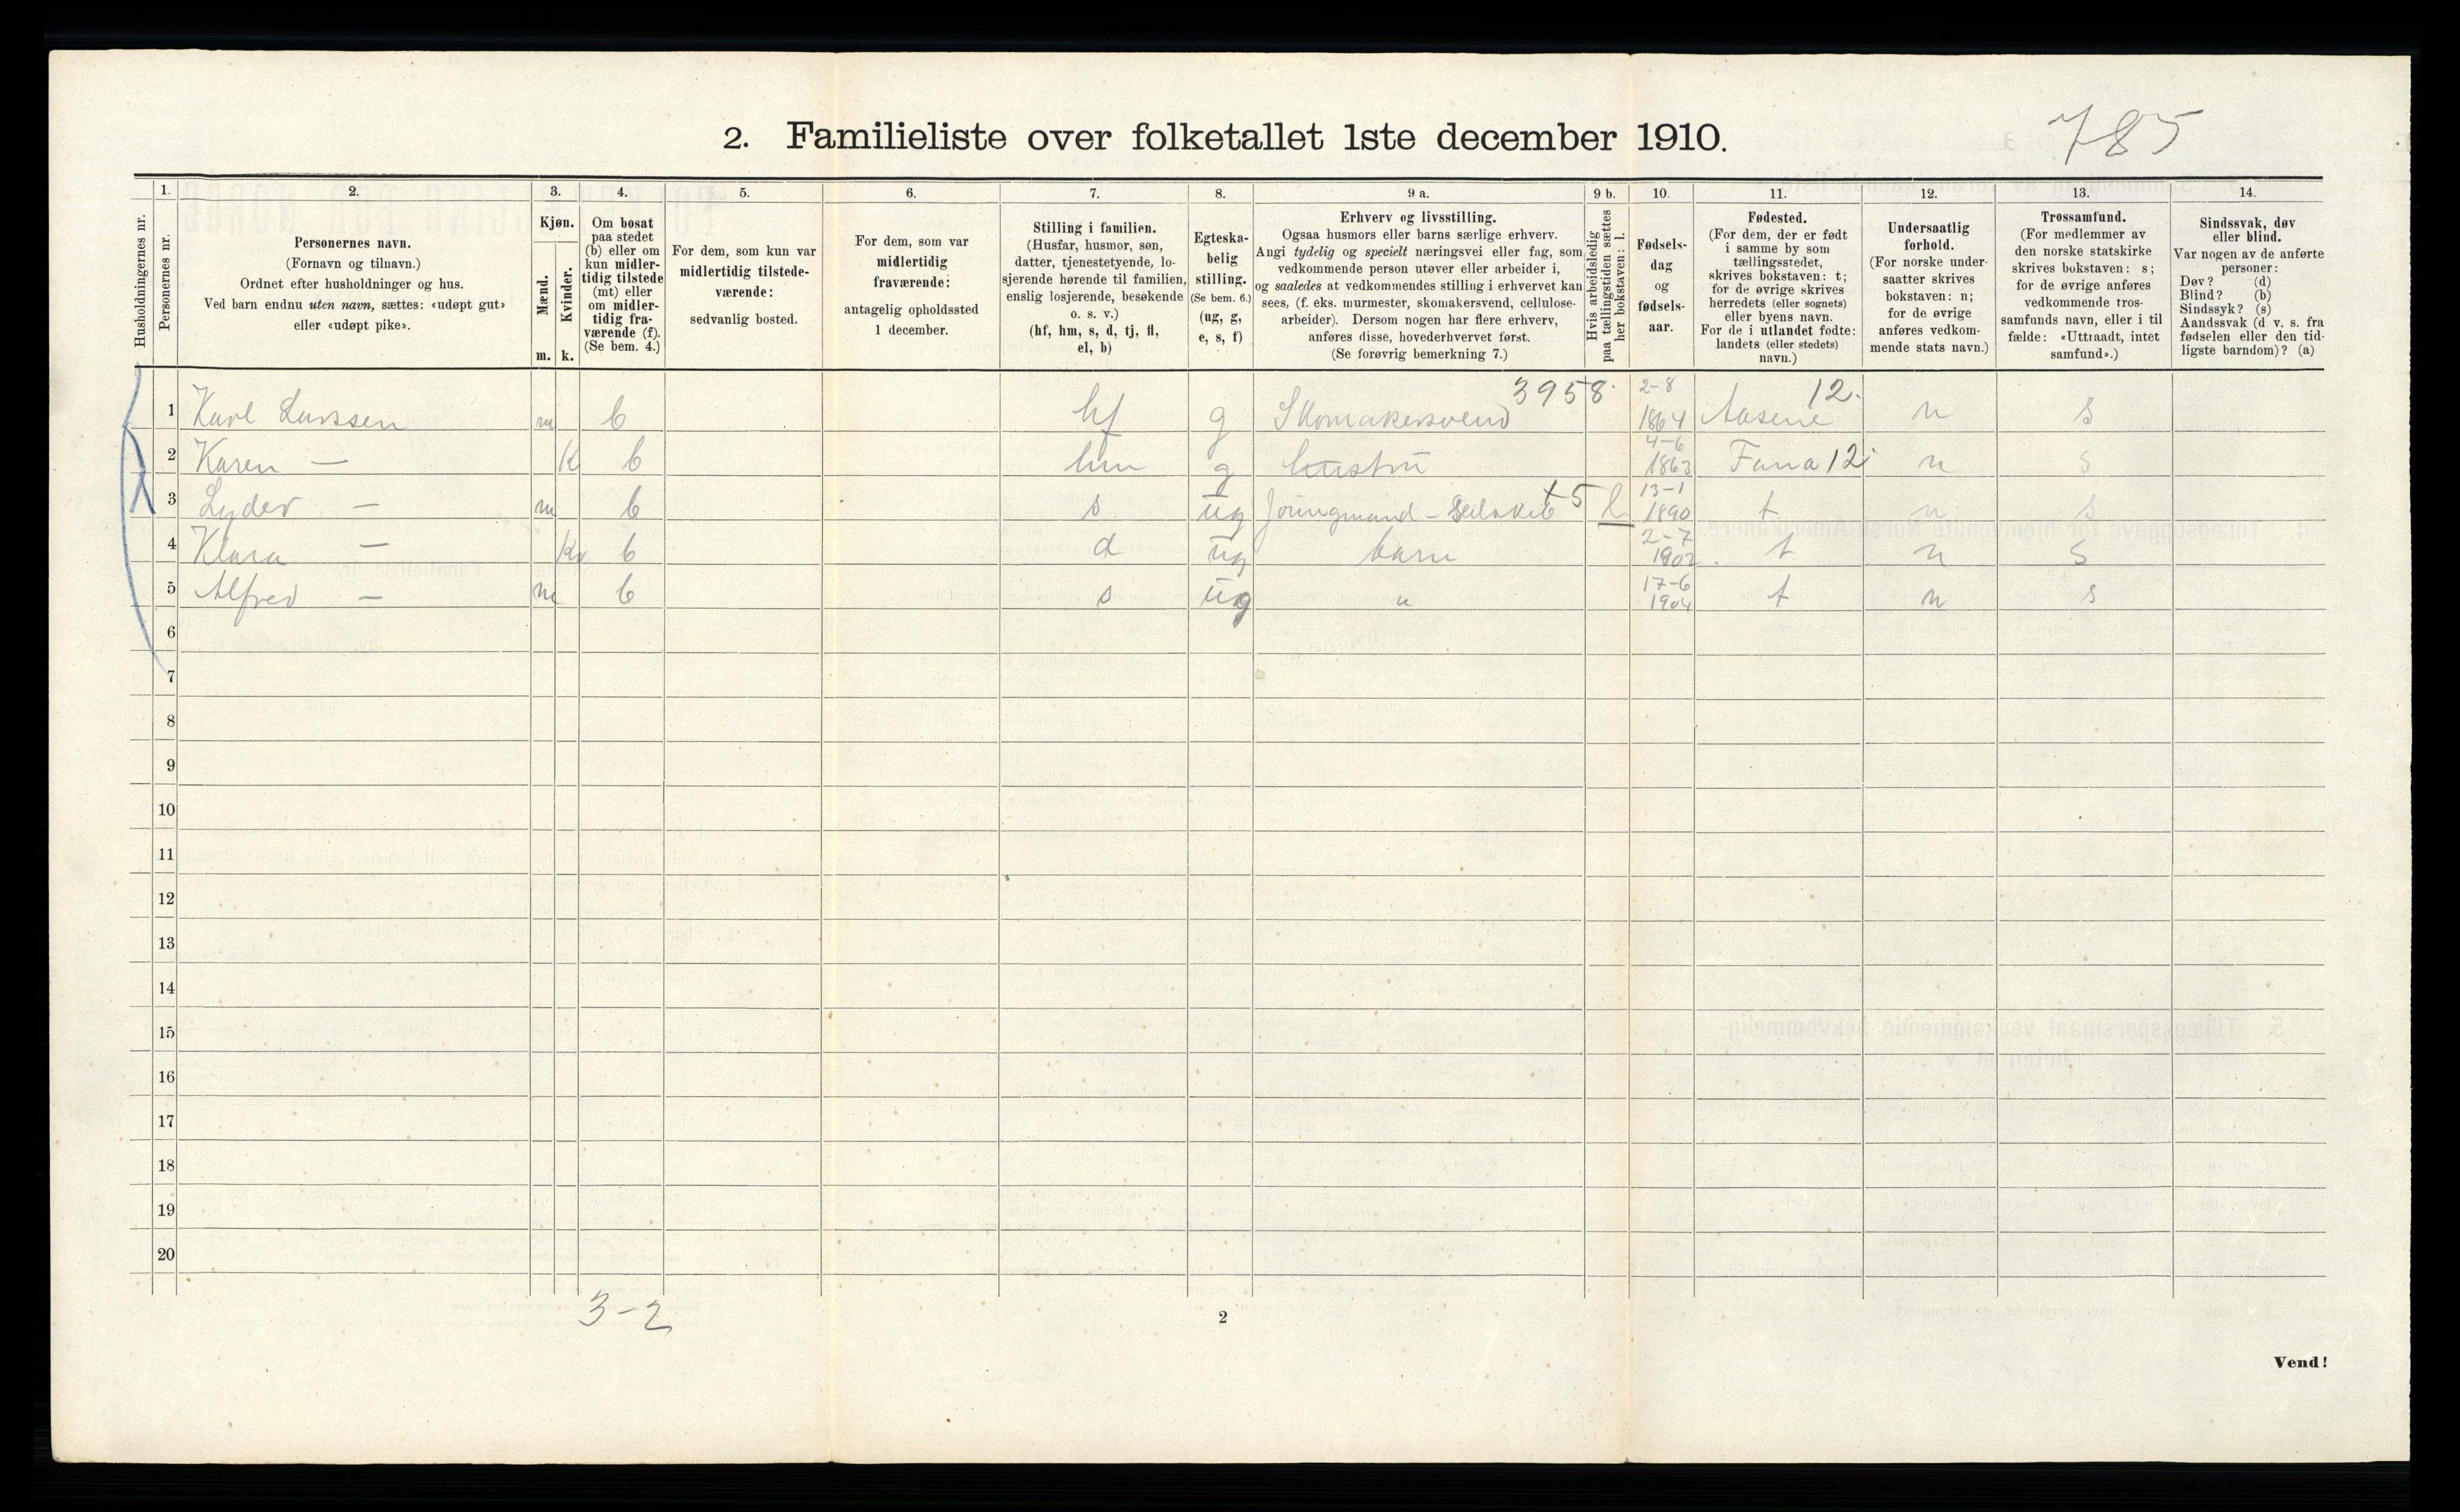 2. Familieliste over folketallet 1ste december 1910.
785
Husholdningernes nr.
1.
Personernes nr.
2.
Personernes navn.
(Fornavn og tilnavn.)
Ordnet efter husholdninger og hus.
Ved barn endnu uten navn, sættes: «udøpt gut»
eller «udøpt pike».
3.
Kjøn.
Mænd.
m.
Kvinder.
k.
4.
Om bosat
paa stedet
(b) eller om
kun midler-
tidig tilstede
(mt) eller
om midler-
tidig fra-
værende (f).
(Se bem. 4.)
5.
For dem, som kun var
midlertidig tilstede-
værende:
sedvanlig bosted.
6.
For dem, som var
midlertidig
fraværende:
antagelig opholdssted
1 december.
7.
Stilling i familien.
(Husfar, husmor, søn,
datter, tjenestetyende, lo-
sjerende hørende til familien,
enslig losjerende, besøkende
o. s. v.)
(hf, hm, s, d, tj, fl,
el, b)
8.
Egteska-
belig
stilling.
(Se bem. 6.)
(ug, g,
e, s, f)
9 a.
Erhverv og livsstilling.
Ogsaa husmors eller barns særlige erhverv.
Angi tydelig og specielt næringsvei eller fag, som
vedkommende person utøver eller arbeider i,
og saaledes at vedkommendes stilling i erhvervet kan
sees, (f. eks. murmester, skomakersvend, cellulose-
arbeider). Dersom nogen har flere erhverv,
anføres disse, hovederhvervet først.
(Se forøvrig bemerkning 7.)
9 b.
Hvis arbeidsledig
paa tællingstiden sættes
her bokstaven: l.
10.
Fødsels-
dag
og
fødsels-
aar.
11.
Fødested.
(For dem, der er født
i samme by som
tællingsstedet,
skrives bokstaven: t;
for de øvrige skrives
herredets (eller sognets)
eller byens navn.
For de i utlandet fødte:
landets (eller stedets)
navn.)
12.
Undersaatlig
forhold.
(For norske under-
saatter skrives
bokstaven: n;
for de øvrige
anføres vedkom-
mende stats navn.)
13.
Trossamfund.
(For medlemmer av
den norske statskirke
skrives bokstaven: s;
for de øvrige anføres
vedkommende tros-
samfunds navn, eller i til
fælde: «Uttraadt, intet
samfund».)
14.
Sindssvak, døv
eller blind.
Var nogen av de anførte
personer:
Døv? (d)
Blind? (b)
Sindssyk? (s)
Aandssvak (d v. s. fra
fødselen eller den tid-
ligste barndom)? (a)
1 Karl Larssen m b hf g Skomakersvend 3958 2-8 1864 Aasene 12. n s
2 Karen — K b hm g hustru 4-6 1863 Fana 12 n s
3 Lyder — m b s ug Joungmand - Seilskib +5 l 13-1 1890 t n s
4 Klara — Kv b d ug barn 2-7 1902 t n s
5 Alfred — m b s ug " 17-6 1904 t n s
6
7
8
9
10
11
12
13
14
15
16
17
18
19
20
3-2
2
Vend!